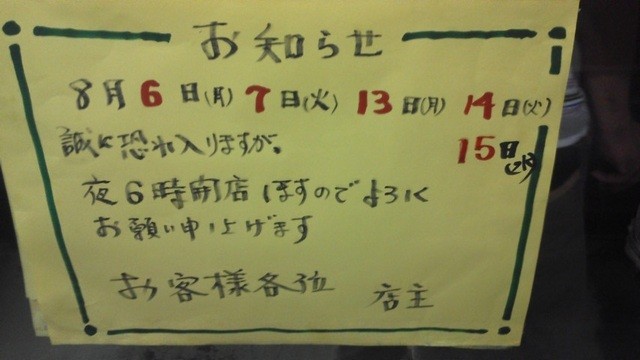 お知らせ
8月6日(月) 7日(火) 13日(月) 14日(火)
15日(水)
誠に恐れ入りますが、
夜6時開店しますのでよろしく
お願い申し上げます
お客様各位 店主